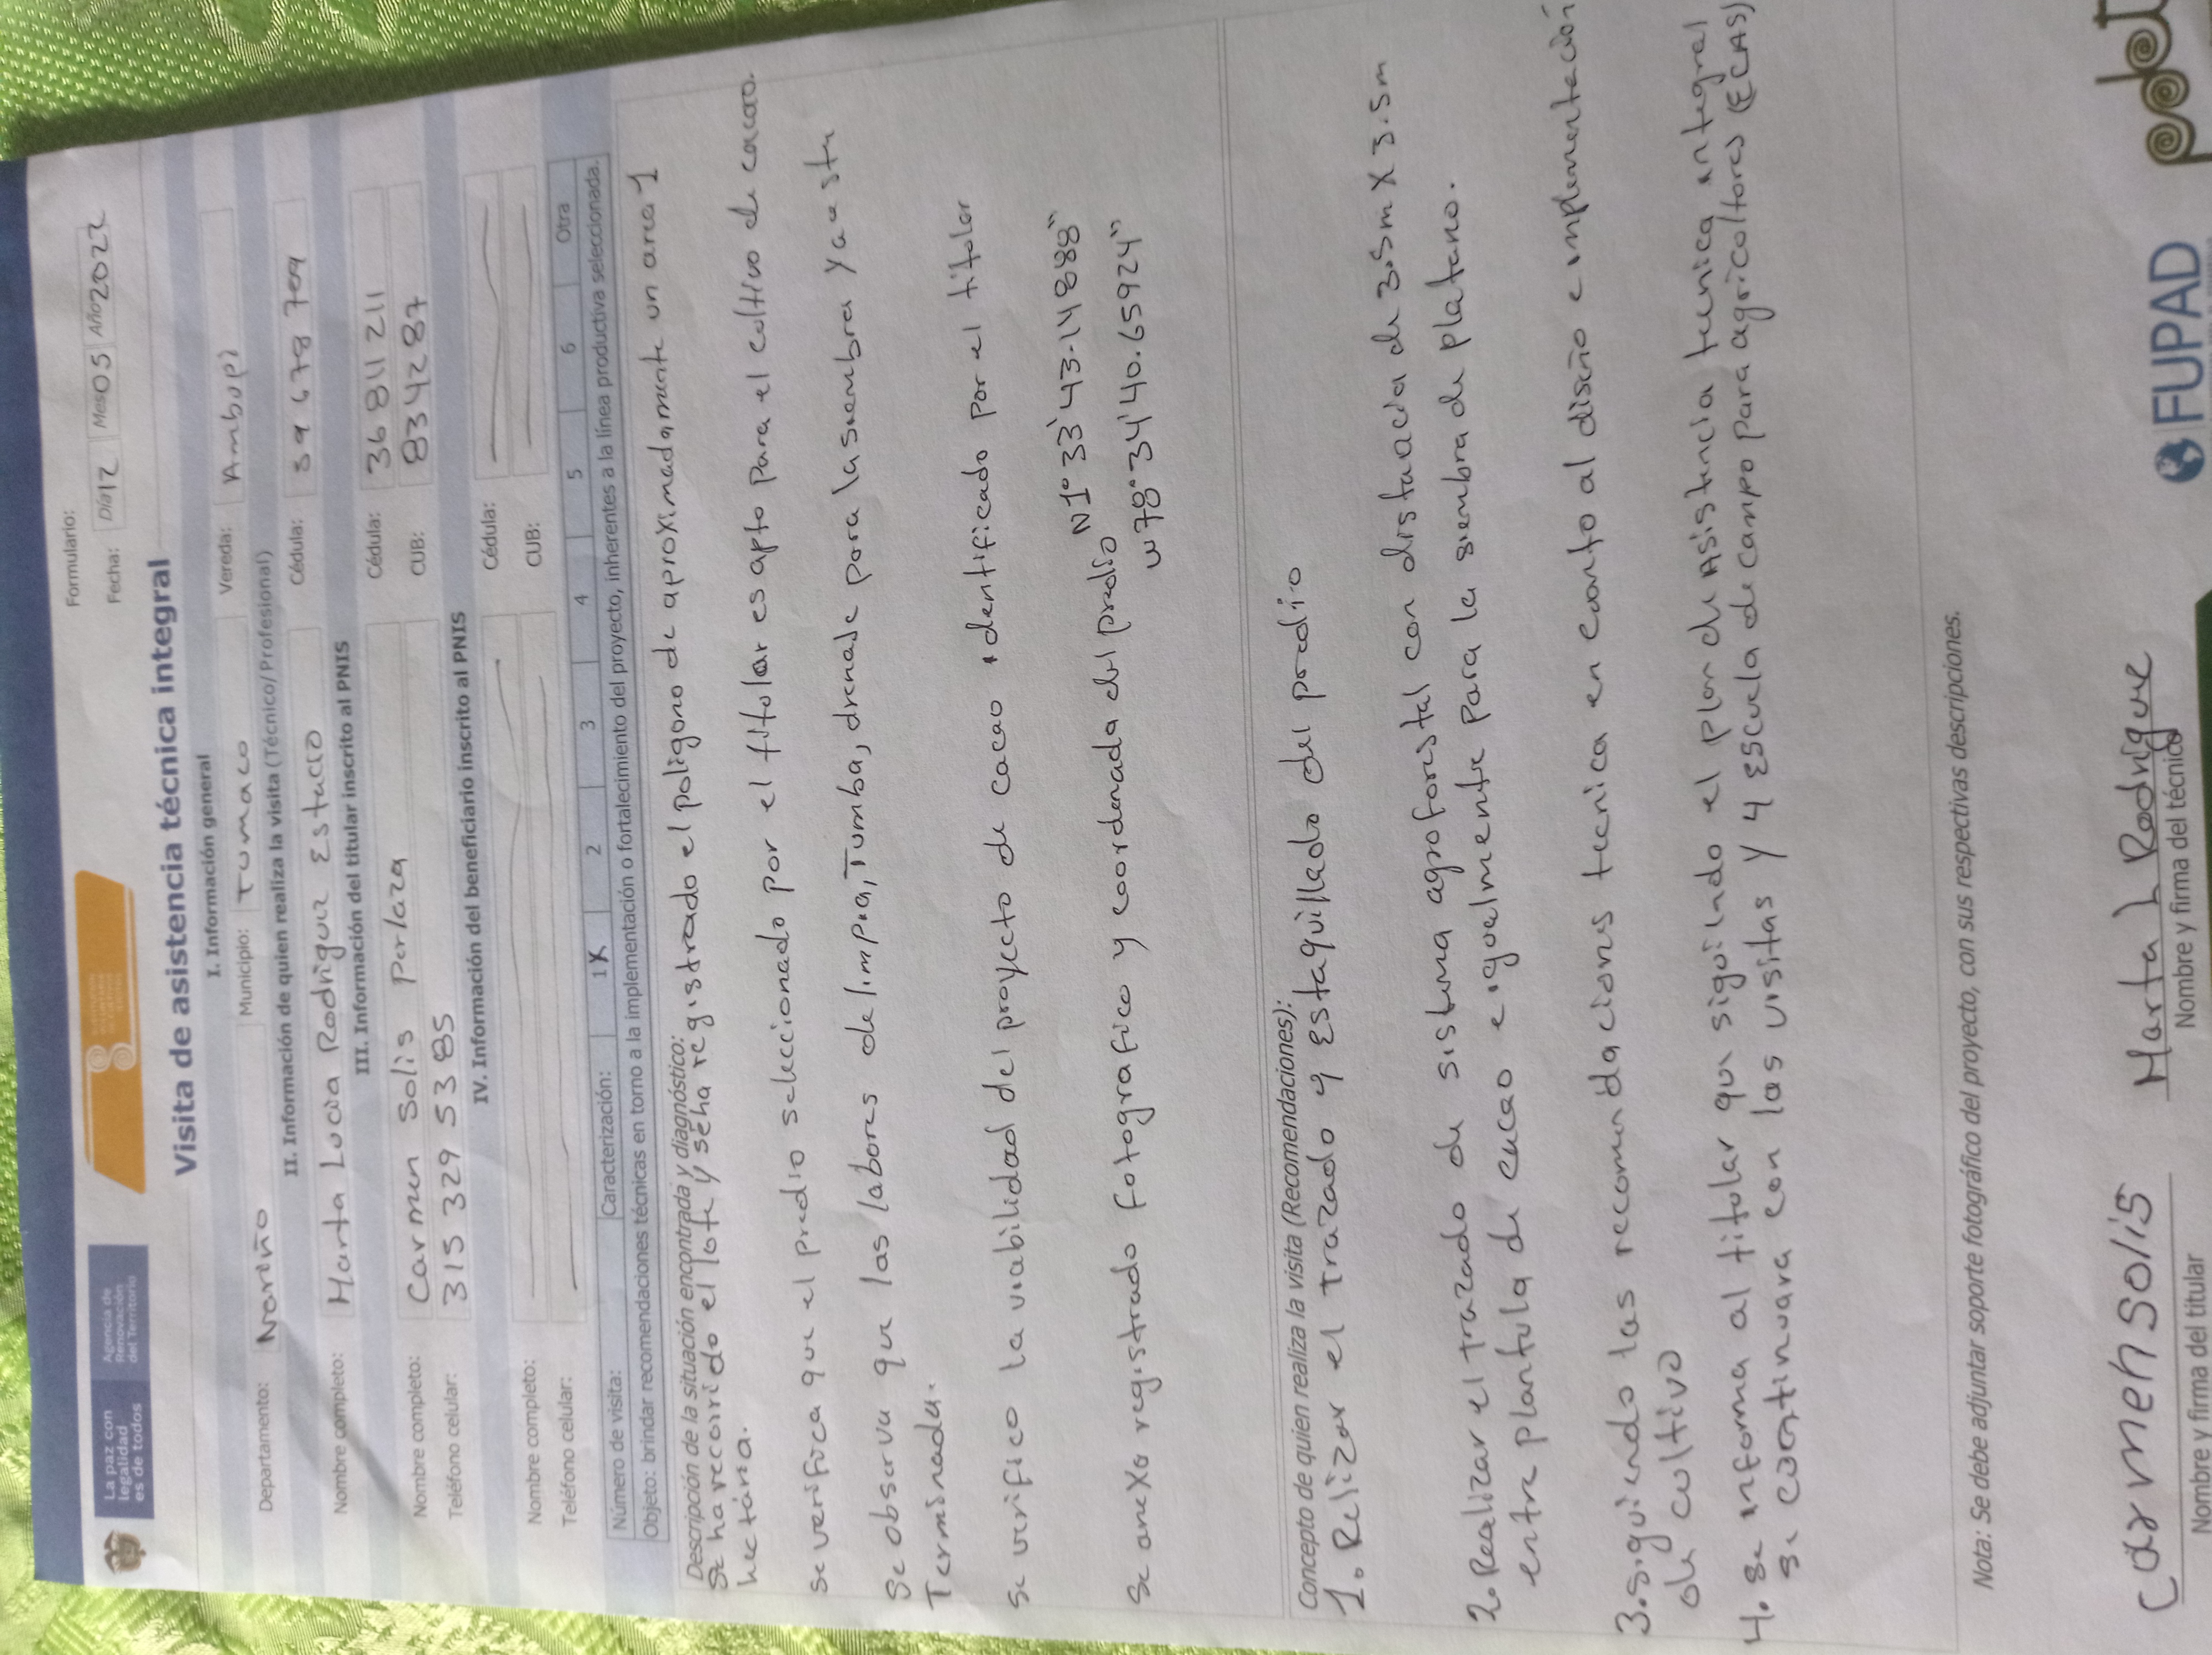 La paz con
legalidad
es de todos
Agencia de
Renovación
del Territorio
Formulario:
Fecha: Día 12 Mes 05 Año 2022
Visita de asistencia técnica integral
I. Información general
Departamento: Nariño Municipio: Tumaco Vereda: Ambupi
II. Información de quien realiza la visita (Técnico/Profesional)
Nombre completo: Marta Lucia Rodriguez Estacio Cédula: 59 678 709
III. Información del titular inscrito al PNIS
Nombre completo: Carmen Solis Perlaza Cédula: 36 811 211
Teléfono celular: 315 329 5385 CUB: 834287
IV. Información del beneficiario inscrito al PNIS
Nombre completo: Cédula:
Teléfono celular: CUB:
Número de visita: Caracterización: 1 X 2 3 4 5 6 Otra
Objeto: brindar recomendaciones técnicas en torno a la implementación o fortalecimiento del proyecto, inherentes a la línea productiva seleccionada.
Descripción de la situación encontrada y diagnóstico:
Se ha recorrido el lote y se ha registrado el poligono de aproximadamente un area 1
hectária.
se verifica que el predio seleccionado por el titular es apto para el cultivo de cacao.
Se observa que las labores de limpia, Tumba, drenaje para la siembra ya esta
Terminada.
Se virifico la viabilidad del proyecto de cacao identificado por el titolar
Se anexo registrado fotografico y coordenada del predio N1° 33' 43.14888"
w78° 34' 40.65924"
Concepto de quien realiza la visita (Recomendaciones):
1. Relizar el trazado y Estaquillado del predio
2. Realizar el trazado de sistema agroforestal con distancia de 3.5m X 3.5m
entre plantula de cacao e igualmente para la siembra de platano.
3. siguiendo las recomendacions tecnica en canto al diseño e implementación
de cultivo
4. se informa al titular que siguindo el plan de Asistencia tecnica integral
se continuara con las visitas y 4 Escuela de campo para agricoltores (ECAS)
Nota: Se debe adjuntar soporte fotográfico del proyecto, con sus respectivas descripciones.
Carmen Solis Marta L Rodrigue
Nombre y firma del titular Nombre y firma del técnico
FUPAD pdet